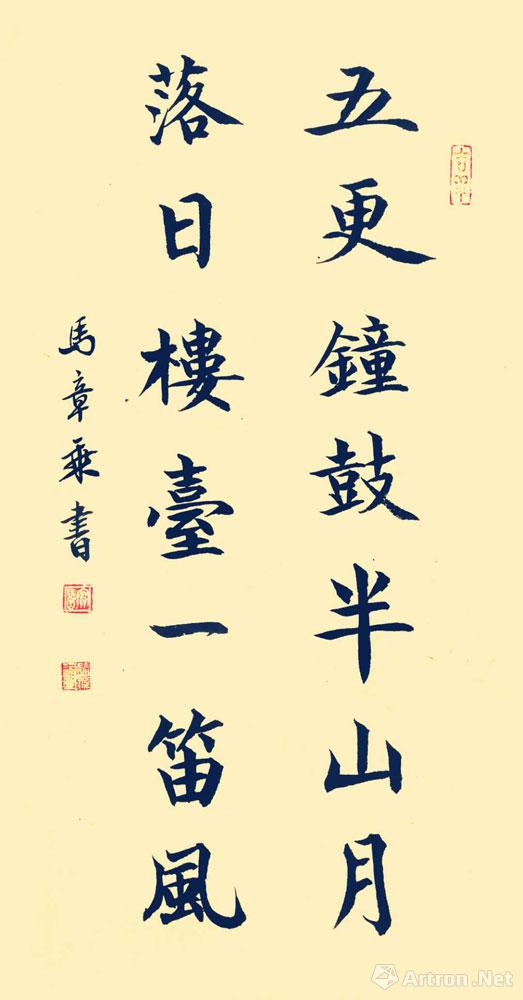 五更鐘鼓半山月
落日樓臺一笛風
馬章乘書
Artron.Net